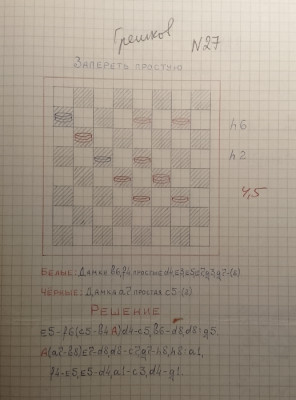 Грешков №27
ЗАПЕРЕТЬ ПРОСТУЮ
h6
h2
4,5
БЕЛЫЕ: ДАМКИ b6,f4 ПРОСТЫЕ d4,e3,e5,e7,g3,g7-(8)
ЧЁРНЫЕ: ДАМКА a7 ПРОСТАЯ c5-(2)
РЕШЕНИЕ
e5-f6(c5-b4 A)d4-c5, b6-d8, d8:g5.
A(a7-b8)e7-d8, d8-c7 g7-h8, h8:a1,
f4-e5, e5-d4, a1-c3, d4-g1.